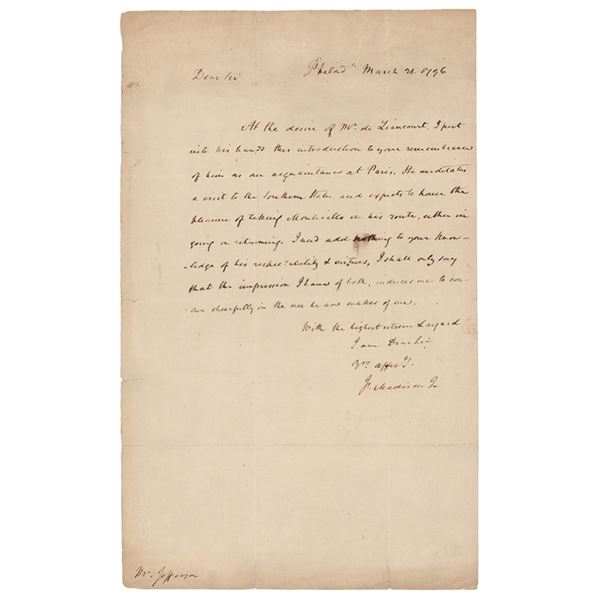 Philada March 21. 1796
Dear Sir
At the desire of Mr. de Liancourt, I put
into his hands this introduction to your remembrance
of him as an acquaintance at Paris. He meditates
a visit to the Southern States and expects to have the
pleasure of taking Monticello in his route, either in
going or returning. I need add nothing to your know-
ledge of his respectability & virtues, I shall only say
that the impression I have of both, induces me to con-
cur chearfully in the use he now makes of me.
With the highest esteem & regard
I am Dear Sir
Yrs. affecy.
Js. Madison Jr
Mr. Jefferson